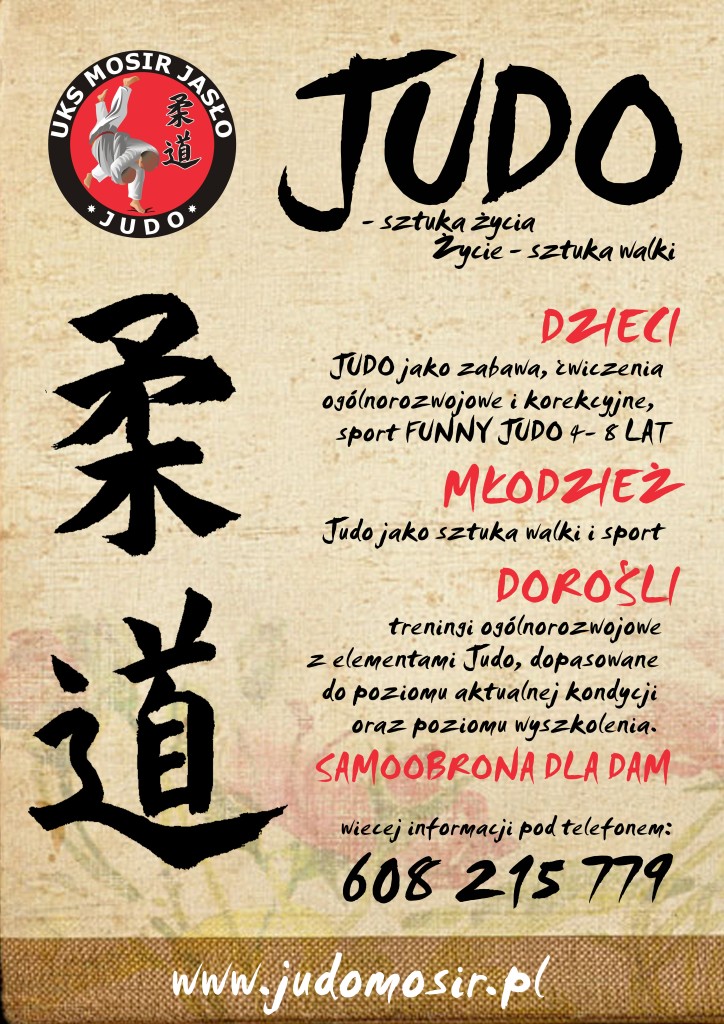 UKS MOSIR JASŁO
柔
道
* JUDO *
JUDO
- sztuka życia
Życie - sztuka walki
柔
道
DZIECI
JUDO jako zabawa, ćwiczenia
ogólnorozwojowe i korekcyjne,
sport FUNNY JUDO 4- 8 LAT
MŁODZIEŻ
Judo jako sztuka walki i sport
DOROŚLI
treningi ogólnorozwojowe
z elementami Judo, dopasowane
do poziomu aktualnej kondycji
oraz poziomu wyszkolenia.
SAMOOBRONA DLA DAM
wiecej informacji pod telefonem:
608 215 779
www.judomosir.pl